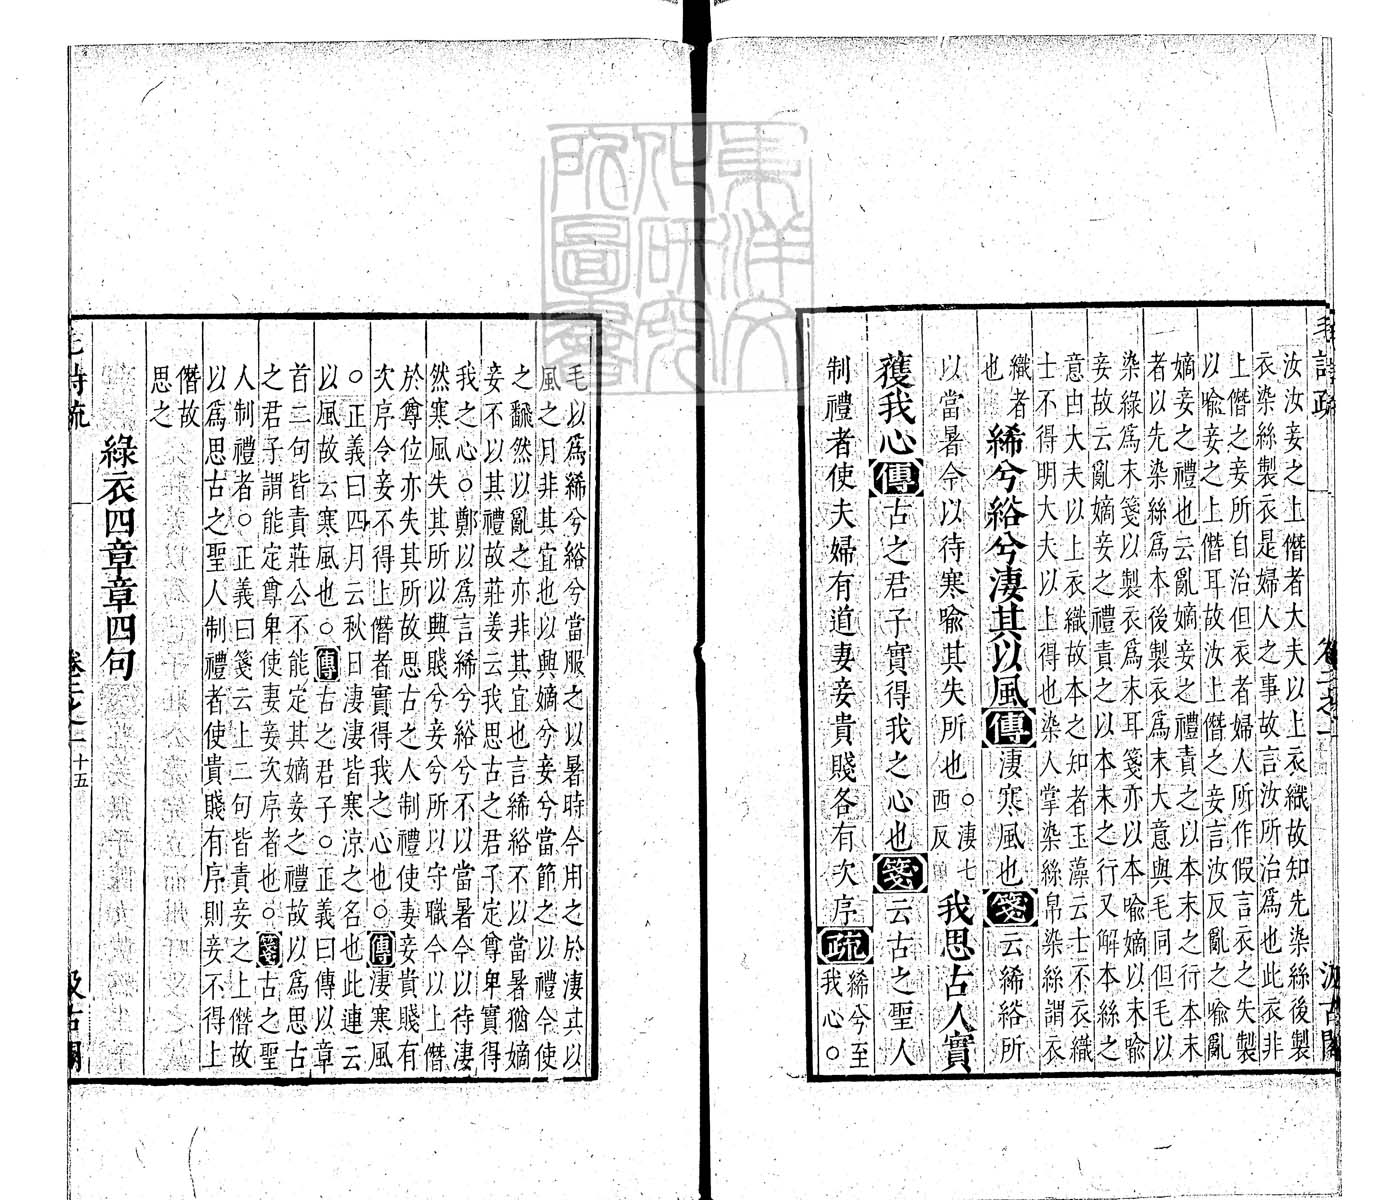 毛詩疏 卷二之一 汲古閣
汝汝妾之上僭者大夫以上衣織故知先染絲後製
衣染絲製衣是婦人之事故言汝所治爲也此衣非
上僭之妾所自治但衣者婦人所作假言衣之失製
以喻妾之上僭耳故汝上僭之妾言汝反亂之喻亂
嫡妾之禮也云亂嫡妾之禮責之以本末之行本末
者以先染絲爲本後製衣爲末大意與毛同但毛以
染綠爲末箋以製衣爲末耳箋亦以本喻嫡以末喻
妾故云亂嫡妾之禮責之以本末之行又解本絲之
意由大夫以上衣織故本之知者玉藻云士不衣織
士不得明大夫以上得也染人掌染絲帛染絲謂衣
織者
也
絺兮綌兮淒其以風傳淒寒風也箋云絺綌所
以當暑今以待寒喻其失所也○淒七西反我思古人實
獲我心傳古之君子實得我之心也箋云古之聖人
制禮者使夫婦有道妻妾貴賤各有次序疏絺兮至
我心○
毛以爲絺兮綌兮當服之以暑時今用之於淒其以
風之月非其宜也以興嫡兮妾兮當節之以禮今使
之翻然以亂之亦非其宜也言絺綌不以當暑猶嫡
妾不以其禮故莊姜云我思古之君子定尊卑實得
我之心○鄭以爲言絺兮綌兮不以當暑今以待淒
然寒風失其所以興賤兮妾兮所以守職今以上僭
於尊位亦失其所故思古之人制禮使妻妾貴賤有
次序令妾不得上僭者實得我之心也○傳淒寒風
○正義曰四月云秋日淒淒皆寒凉之名也此連云
以風故云寒風也○傳古之君子○正義曰傳以章
首二句皆責莊公不能定其嫡妾之禮故以爲思古
之君子謂能定尊卑使妻妾次序者也○箋古之聖
人制禮者○正義曰箋云上二句皆責妾之上僭故
以爲思古之聖人制禮者使貴賤有序則妾不得上
僭故
思之
綠衣四章章四句
毛詩疏 卷二之一 十五 汲古閣
東洋文化研究所圖書